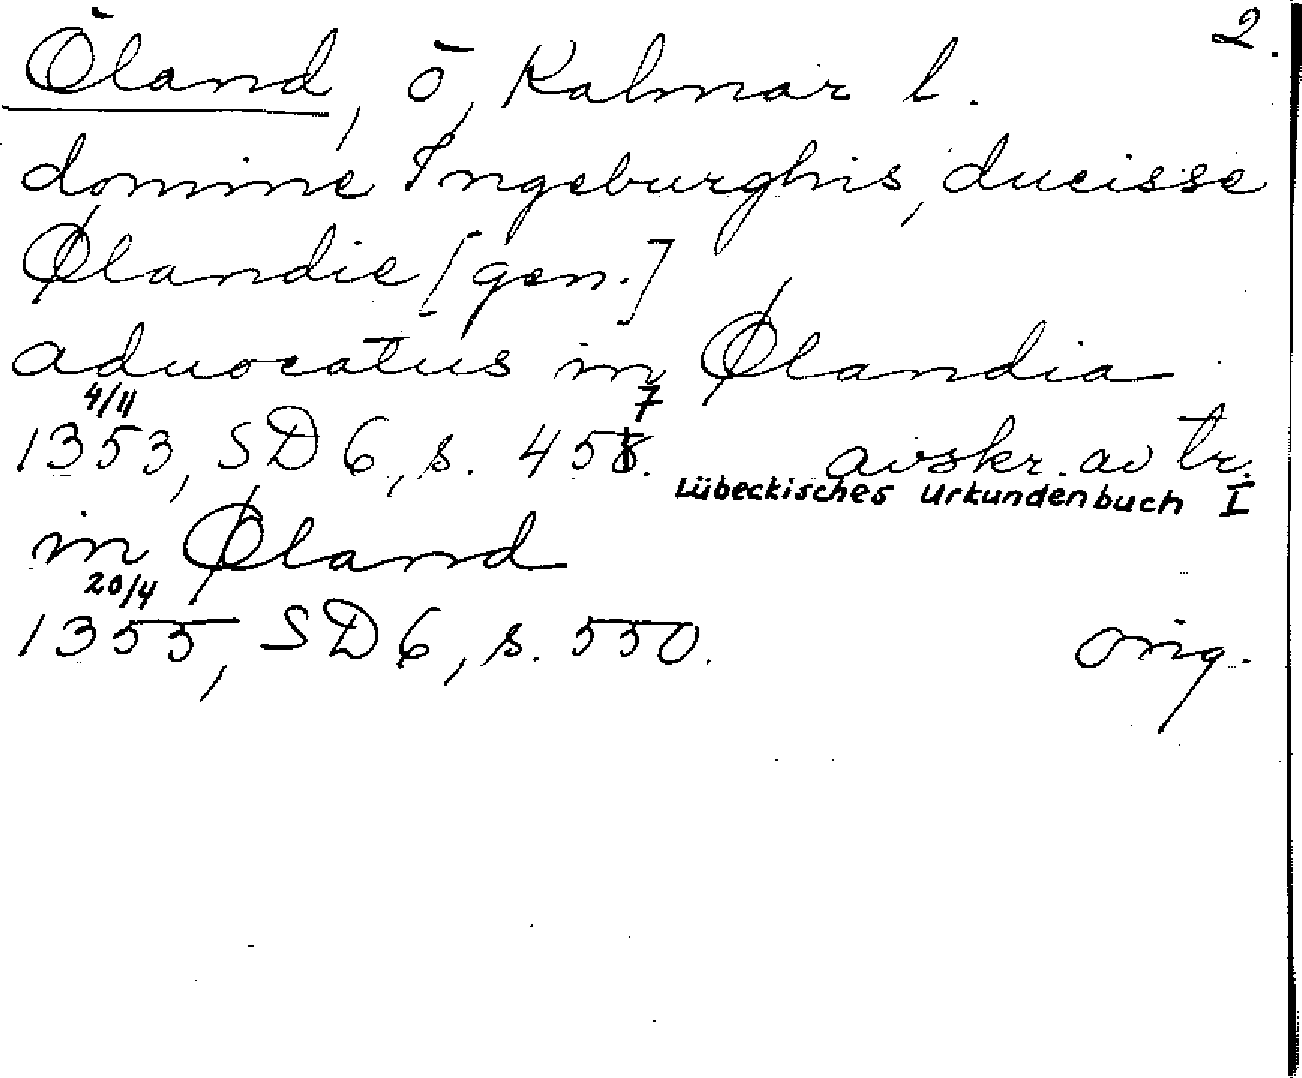 2.
Öland, ö, Kalmar l.
domine Ingeburghis, ducisse
Ølandie [gen.]
aduocatus in Ølandia
4/11 7
1353, SD 6, s. 458. avskr. av tr.
Lübeckisches Urkundenbuch I
in Øland
20/4
1355, SD 6, s. 550. orig.